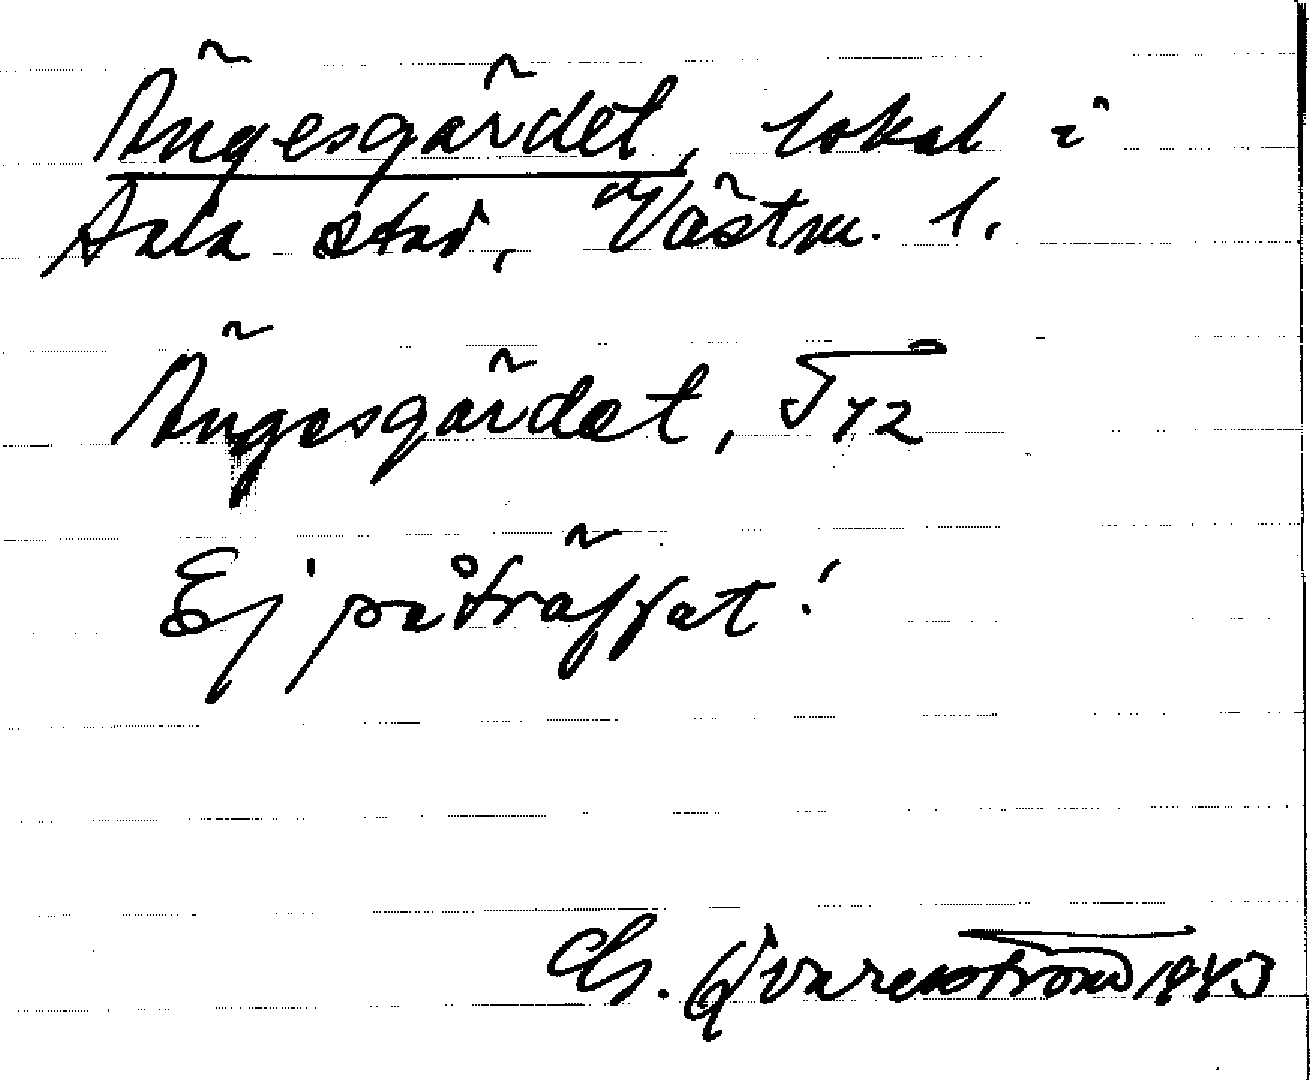 Ängesgärdet, lokal i
Sala stad, Västm. l.
Ängesgärdet, T 72
Ej påträffat!
Ch. Qvarenström 1943